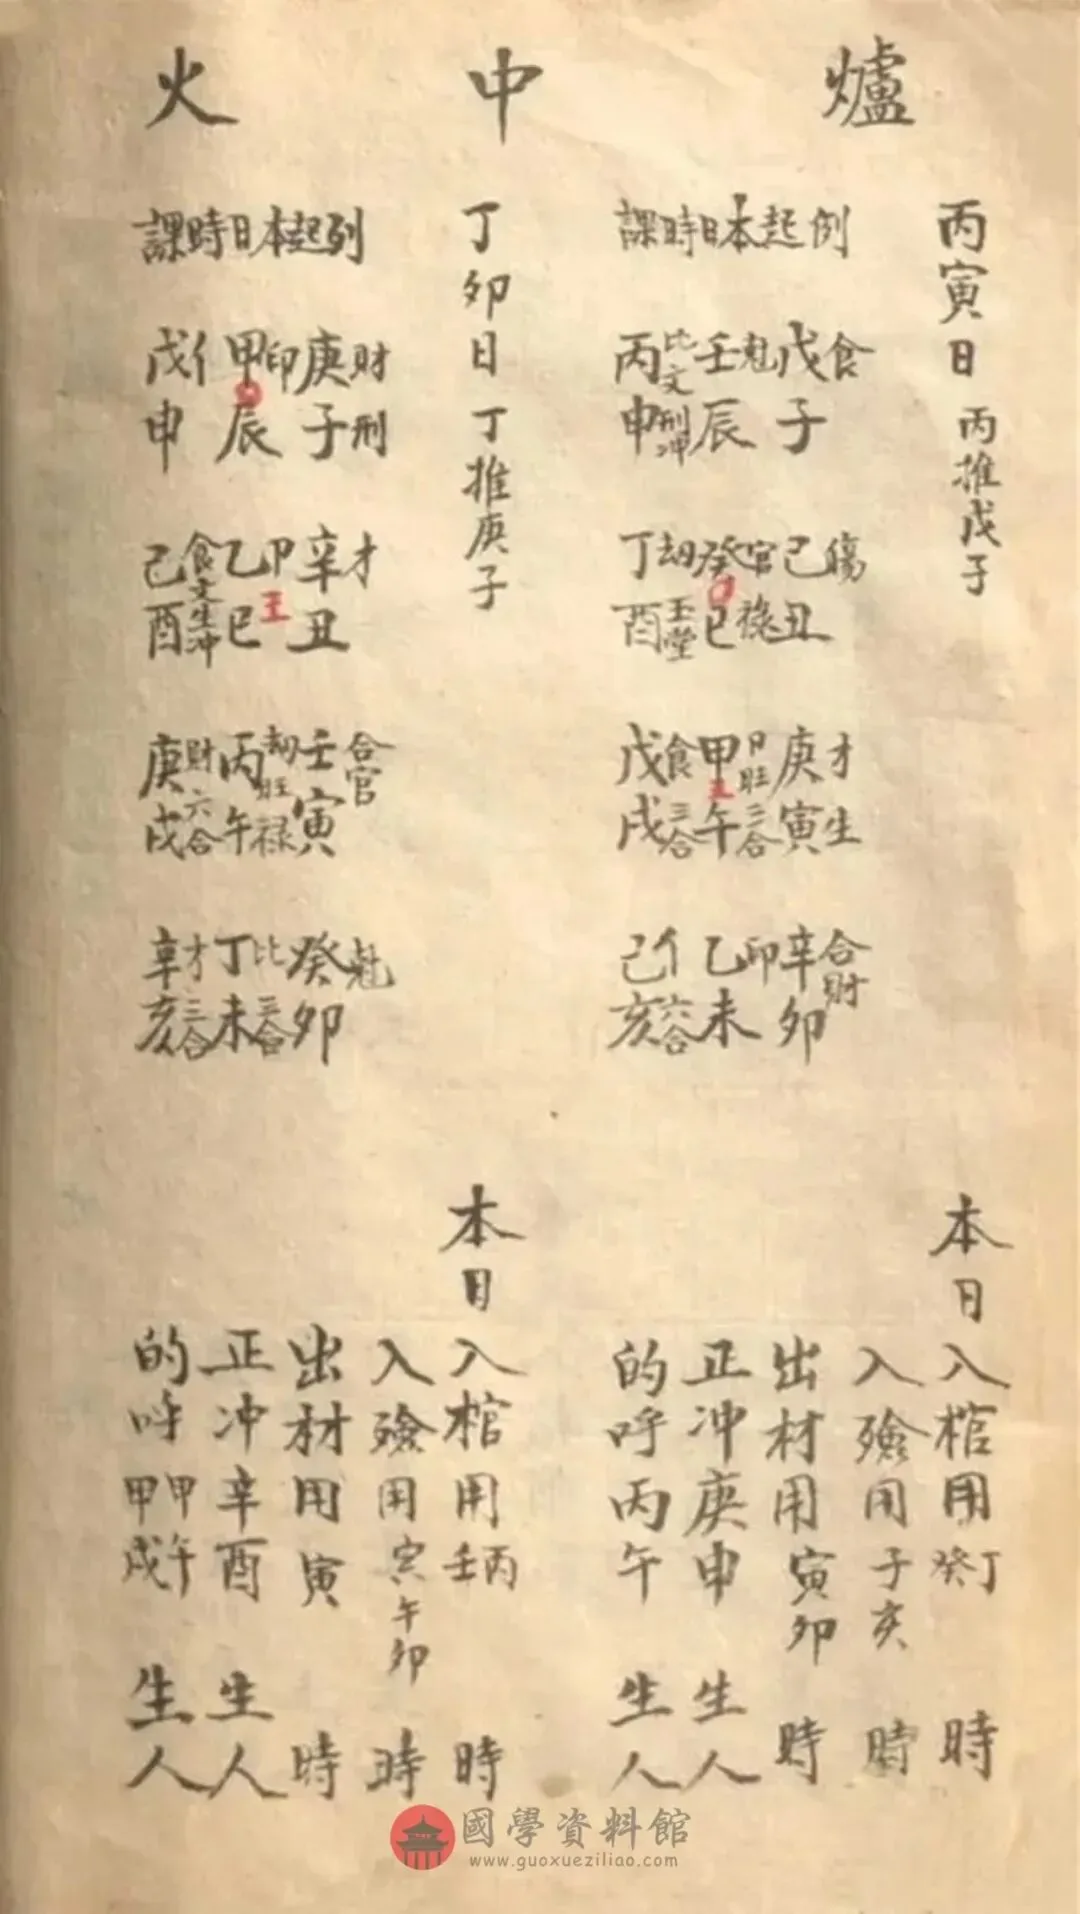 爐中火
丙寅日 丙推戊子
例起本日時課
戊食 壬魁 丙比文
子 辰 申刑冲
己傷 癸官 丁劫
丑 巳祿 酉玉堂
庚才 甲卩旺 戊食
寅生 午三合 戌三合
辛合財 乙印 己亻
卯 未 亥六合
本日
入棺用丁癸時
入殮用子亥時
出材用寅卯時
正冲庚申生人
的呼丙午生人
丁卯日 丁推庚子
列起本日時課
庚財 甲印 戊亻
子刑 辰 申
辛才 乙卩 己食文
丑 巳王 酉生冲
壬合官 丙劫旺 庚財
寅 午祿 戌六合
癸魁 丁比 辛才
卯 未三合 亥三合
本日
入棺用丙壬時
入殮用寅午卯時
出材用寅時
正冲辛酉生人
的呼甲午甲戌生人
國學資料館
www.guoxueziliao.com